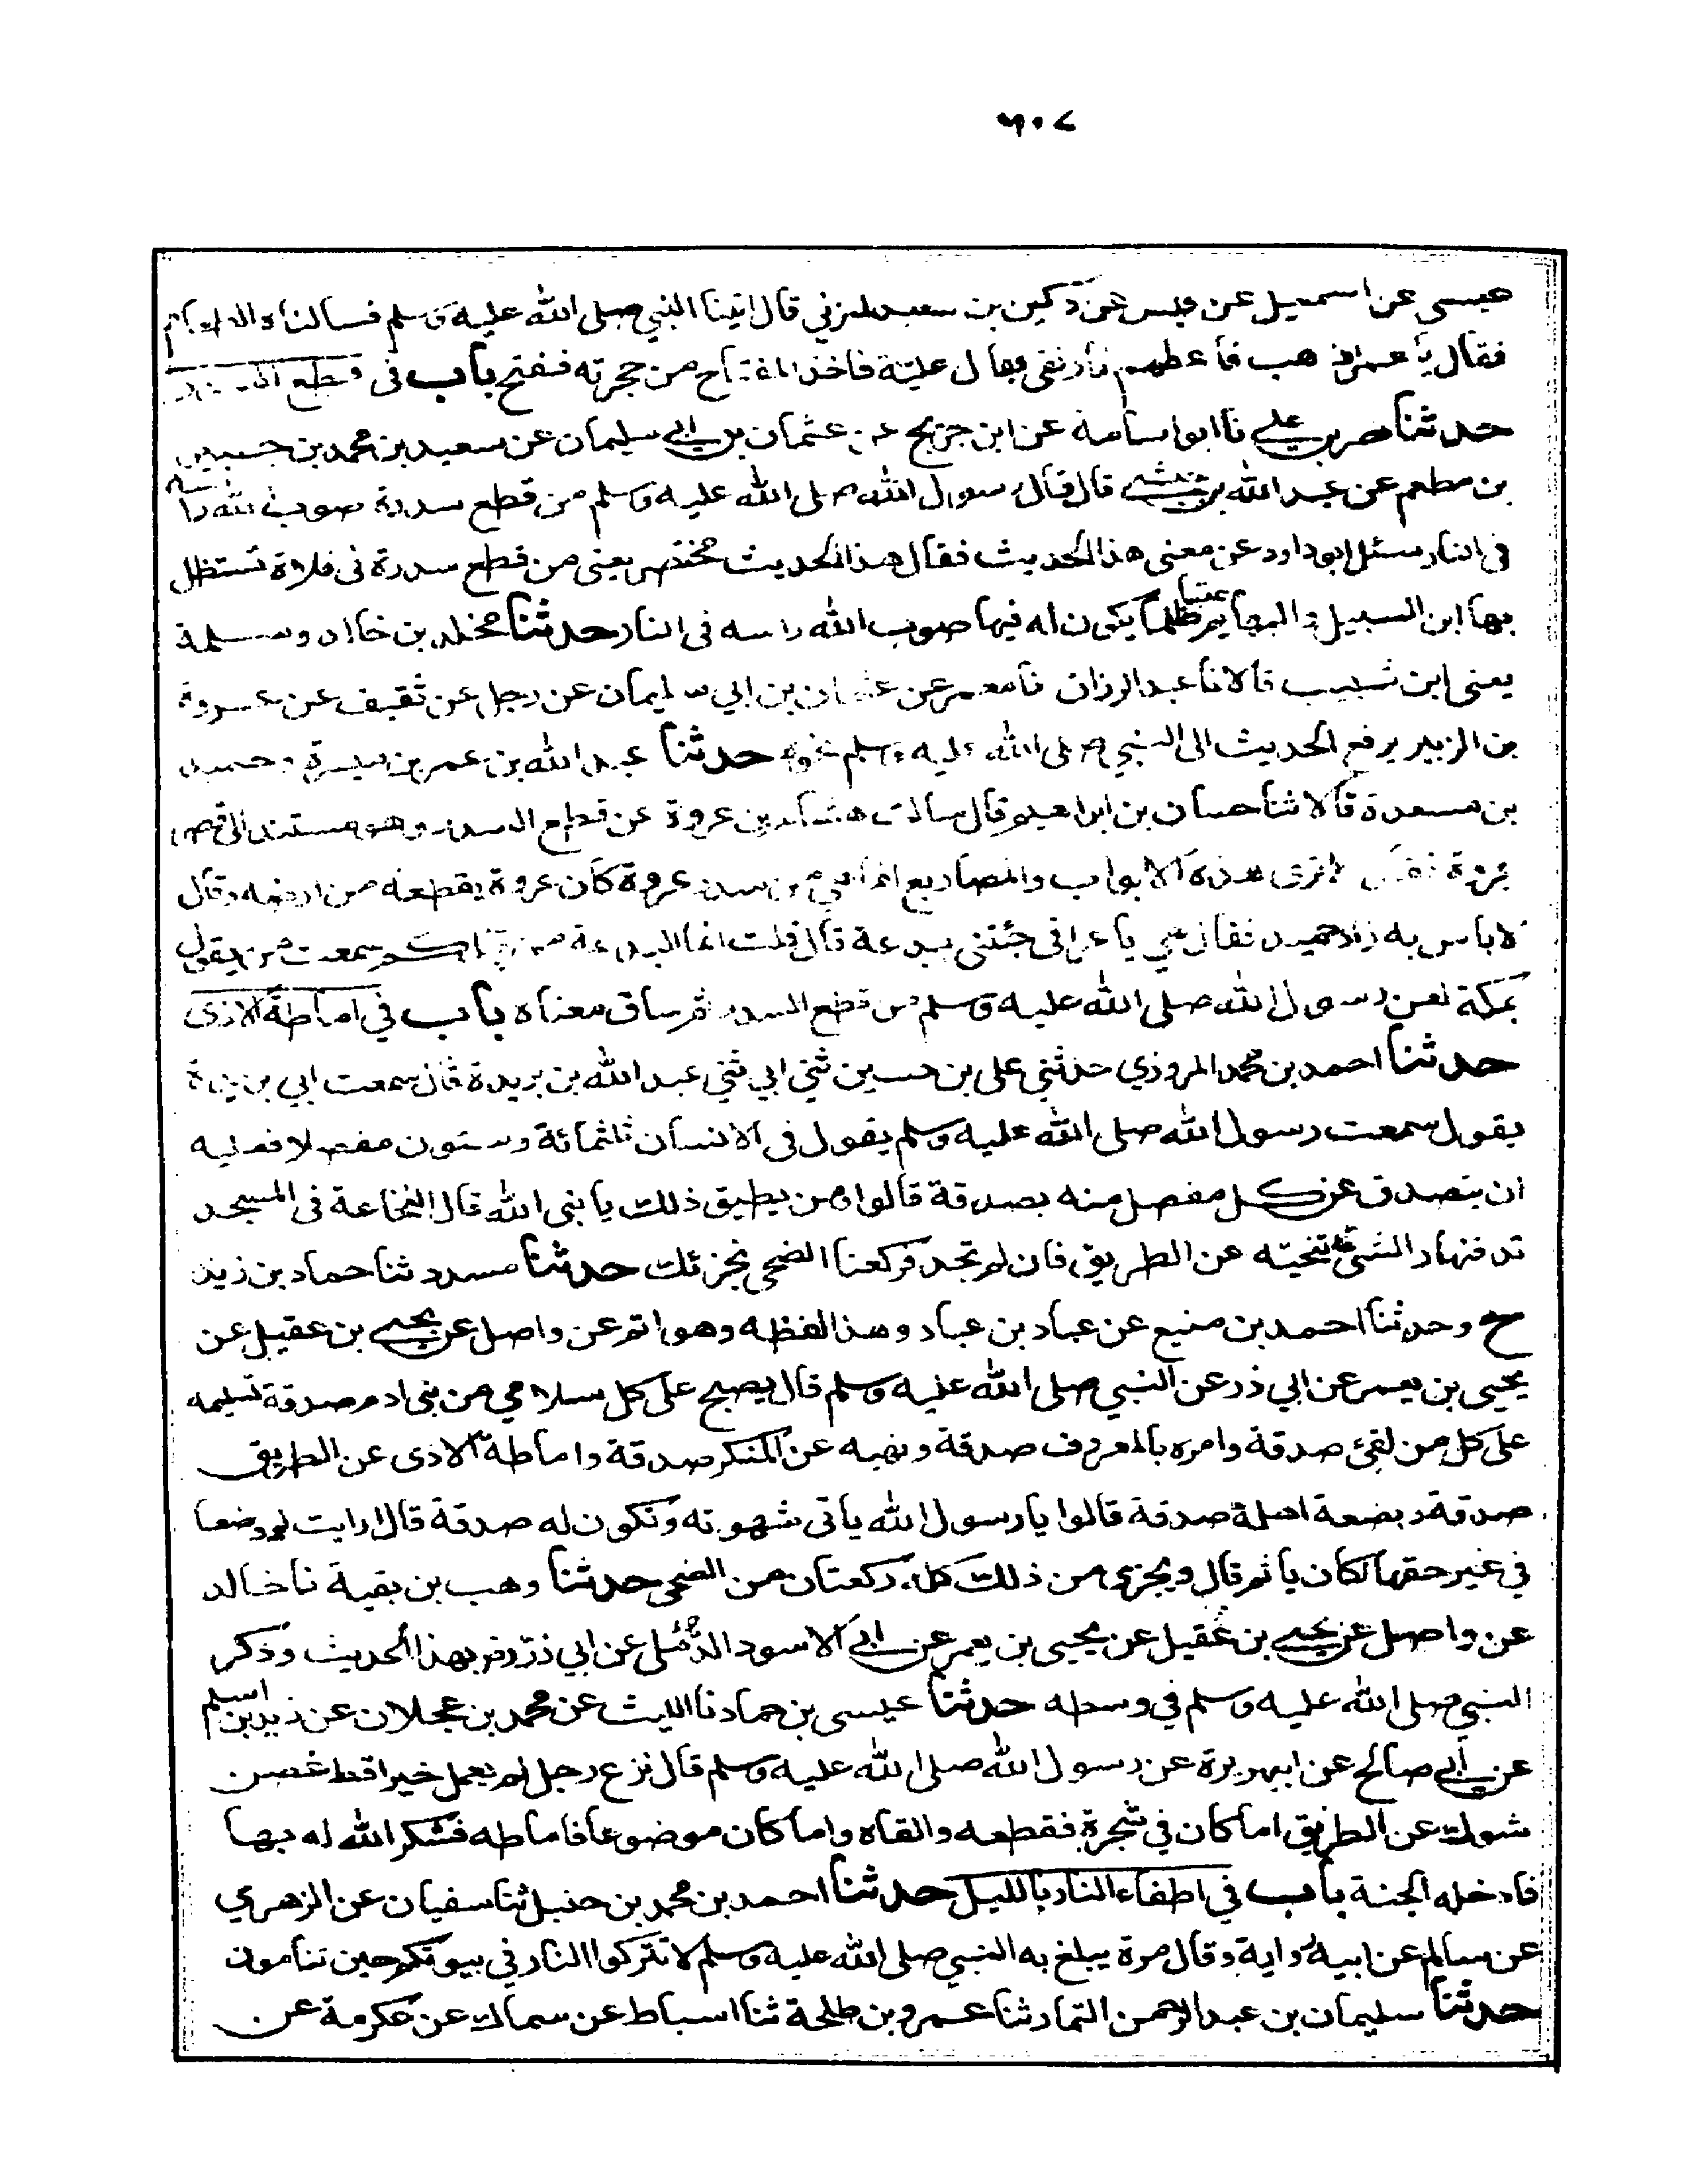 ٦٠٧
عيسى عن اسمعيل عن قيس عن دكين بن سعيد المزني قال اتينا النبي صلى الله عليه وسلم فسالناه الطعام
فقال يا عمر اذهب فاعطهم فارتقى بنا الى علية فاخذ المفتاح من حجرته ففتح باب في قطع السدر
حدثنا نصر بن علي نا ابو اسامة عن ابن جريج عن عثمان بن ابي سليمان عن سعيد بن محمد بن جبير
بن مطعم عن عبد الله بن حبشي قال قال رسول الله صلى الله عليه وسلم من قطع سدرة صوب الله راسه
في النار سئل ابو داود عن معنى هذا الحديث فقال هذا الحديث مختصر يعني من قطع سدرة في فلاة تستظل
بها ابن السبيل والبهايم عبثا ظلما يكون له فيها صوب الله راسه في النار حدثنا مخلد بن خالد وسلمة
يعني ابن شبيب قالا نا عبد الرزاق نا معمر عن عثمان بن ابي سليمان عن رجل عن ثقيف عن عروة
بن الزبير يرفع الحديث الى النبي صلى الله عليه وسلم نحوه حدثنا عبد الله بن عمر بن ميسرة وحميد
بن مسعدة قالا ثنا حسان بن ابراهيم قال سالت هشام بن عروة عن قطع السدر وهو مستند الى قصر
عروة فقال ترى هذه الابواب والمصاريع انما هي من سدر عروة كان عروة يقطعه من ارضه وقال
لا باس به زاد حميد فقال هي يا عراقي جئتني ببدعة قال قلت انما البدعة من قبلكم سمعت من يقول
بمكة لعن رسول الله صلى الله عليه وسلم من قطع السدر ثم ساق معناه باب في اماطة الاذى
حدثنا احمد بن محمد المروزي حدثني علي بن حسين ثني ابي ثني عبد الله بن بريدة قال سمعت ابي بريدة
يقول سمعت رسول الله صلى الله عليه وسلم يقول في الانسان ثلثمائة وستون مفصلا فعليه
ان يتصدق عن كل مفصل منه بصدقة قالوا ومن يطيق ذلك يا نبي الله قال النخاعة في المسجد
تدفنها والشئ تنحيه عن الطريق فان لم تجد فركعتا الضحى تجزئك حدثنا مسدد ثنا حماد بن زيد
ح وحدثنا احمد بن منيع عن عباد بن عباد وهذا لفظه وهو اتم عن واصل عن يحيى بن عقيل عن
يحيى بن يعمر عن ابي ذر عن النبي صلى الله عليه وسلم قال يصبح على كل سلامي من بني ادم صدقة تسليمه
على كل من لقي صدقة وامره بالمعروف صدقة ونهيه عن المنكر صدقة واماطة الاذى عن الطريق
صدقة وبضعة اهله صدقة قالوا يا رسول الله ياتي شهوته وتكون له صدقة قال ارايت لو وضعها
في غير حقها اكان ياثم قال ويجزي من ذلك كله ركعتان من الضحى حدثنا وهب بن بقية نا خالد
عن واصل عن يحيى بن عقيل عن يحيى بن يعمر عن ابي الاسود الدئلي عن ابي ذر وفر بهذا الحديث وذكر
النبي صلى الله عليه وسلم في وسطه حدثنا عيسى بن حماد نا الليث عن محمد بن عجلان عن زيد بن اسلم
عن ابي صالح عن ابي هريرة عن رسول الله صلى الله عليه وسلم قال نزع رجل لم يعمل خيرا قط غصن
شوك عن الطريق اما كان في شجرة فقطعه والقاه واما كان موضوعا فاماطه فشكر الله له بها
فادخله الجنة باب في اطفاء النار بالليل حدثنا احمد بن محمد بن حنبل ثنا سفيان عن الزهري
عن سالم عن ابيه رواية وقال مرة يبلغ به النبي صلى الله عليه وسلم لا تتركوا النار في بيوتكم حين تنامون
حدثنا سليمان بن عبد الرحمن التمار ثنا عمرو بن طلحة ثنا اسباط عن سماك عن عكرمة عن